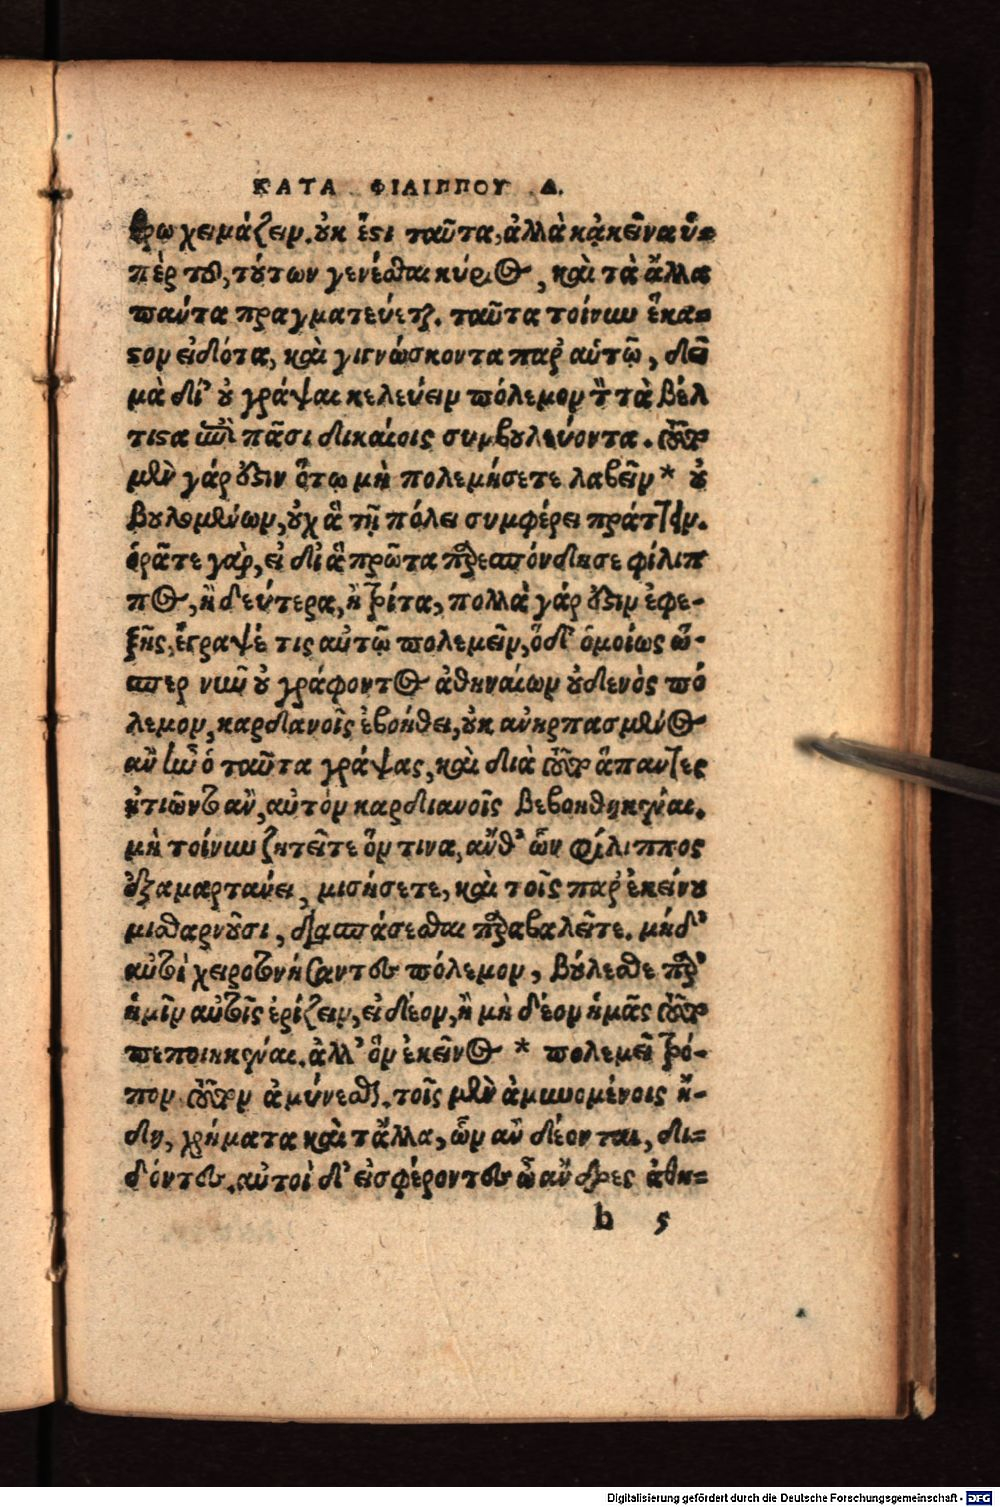 ΚΑΤΑ ΦΙΛΙΠΠΟΥ Δ.
θρῳ χειμάζειν. οὐκ ἔστι ταῦτα, ἀλλὰ κἀκεῖνα ὑ-
πὲρ τοῦ, τούτων γενέσθαι κύριος, καὶ τὰ ἄλλα
πάντα πραγματεύεται. ταῦτα τοίνυν ἕκα-
στον εἰδότα, καὶ γιγνώσκοντα παρ' αὑτῷ, δεῖ
μὰ δί' οὐ γράψαι κελεύειν πόλεμον τὸν τὰ βέλ
τιστα ἐπὶ πᾶσι δικαίοις συμβουλεύοντα. τοῦτο
μὲν γάρ ἐστιν ὅτῳ μὴ πολεμήσετε λαβεῖν * οὐ
βουλομένων, οὐχ ἃ τῇ πόλει συμφέρει πράττειν.
ὁρᾶτε γὰρ, εἰ δι' ἃ πρῶτα παρεσπόνδησε φίλιπ
πος, ἢ δεύτερα, ἢ τρίτα, πολλὰ γάρ ἐστιν ἐφε-
ξῆς, ἔγραψέ τις αὐτῷ πολεμεῖν, ὁ δ' ὁμοίως ὥ-
σπερ νῦν οὐ γράφοντος ἀθηναίων οὐδενὸς πό
λεμον, καρδιανοῖς ἐβοήθει, οὐκ ἀνηρπασμένος
ἂν ἦν ὁ ταῦτα γράψας, καὶ διὰ τοῦτο ἅπαντες
ᾐτιῶντο ἂν, αὐτὸν καρδιανοῖς βεβοηθηκέναι.
μὴ τοίνυν ζητεῖτε ὅν τινα, ἀνθ' ὧν φίλιππος
ἐξαμαρτάνει, μισήσετε, καὶ τοῖς παρ' ἐκείνου
μισθαρνοῦσι, διασπάσεσθαι παραβαλεῖτε. μήδ'
αὐτοὶ χειροτονήσαντες πόλεμον, βούλεσθε παρ'
ἡμῖν αὐτοῖς ἐρίζειν, εἰ δέον, ἢ μὴ δέον ἡμᾶς τοῦτο
πεποιηκέναι. ἀλλ' ὃν ἐκεῖνος * πολεμεῖ τρό-
πον τοῦτον ἀμύνεσθε. τοῖς μὲν ἀμυνομένοις ἤ-
δη, χρήματα καὶ τἄλλα, ὧν ἂν δέονται, δι-
δόντες. αὐτοὶ δ' εἰσφέροντες ὦ ἄνδρες ἀθη-
b 5
Digitalisierung gefördert durch die Deutsche Forschungsgemeinschaft - DFG